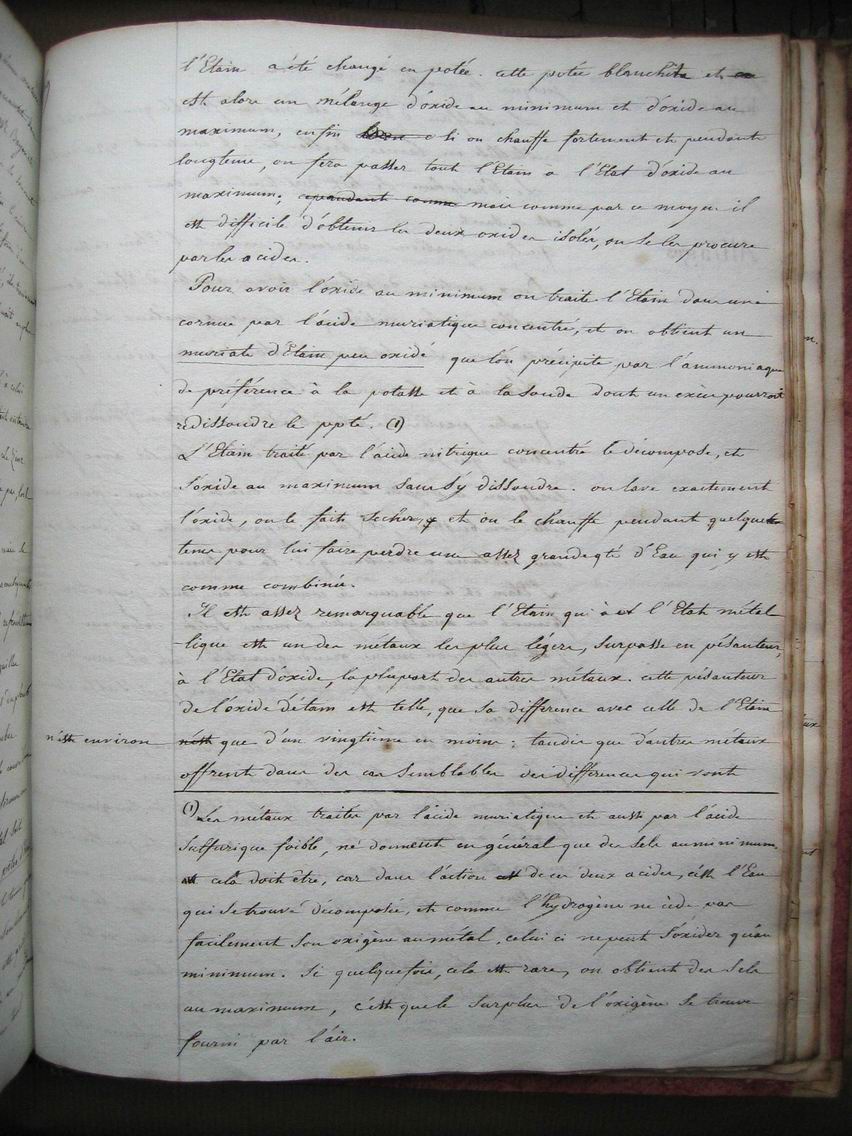 l'Etain a été changé en potée. cette potée blanchit et
est alors un mélange d'oxide au minimum et d'oxide au
maximum, enfin si on chauffe fortement et pendant
longtems, on fera passer tout l'Etain à l'Etat d'oxide au
maximum; cependant comme mais comme par ce moyen il
est difficile d'obtenir les deux oxides isolés, on se les procure
par les acides.
Pour avoir l'oxide au minimum on traite l'Etain dans une
cornue par l'acide muriatique concentré, et on obtient un
muriate d'Etain peu oxidé que l'on précipite par l'ammoniaque
de préférence à la potasse et à la soude dont un excès pourroit
redissoudre le ppté. (1)
L'Etain traité par l'acide nitrique concentré le décompose, et
s'oxide au maximum sans s'y dissoudre. on lave exactement
l'oxide, on le fait secher, et on le chauffe pendant quelque
tems pour lui faire perdre une assez grande qté d'Eau qui y est
comme combinée.
Il est assez remarquable que l'Etain qui à l'Etat métal
lique est un des métaux les plus légers, surpasse en pésanteur,
à l'Etat d'oxide, la plupart des autres métaux. cette pésanteur
de l'oxide d'étain est telle, que sa différence avec celle de l'Etain
n'est environ n'est que d'un vingtième en moins; tandis que d'autres métaux
offrent dans des cas semblables des différences qui vont
(1) Les métaux traités par l'acide muriatique et aussi par l'acide
sulfurique foible, ne donnent en général que des sels au minimum.
cela doit être, car dans l'action de ces deux acides, c'est l'Eau
qui se trouve décomposée, et comme l'hydrogène ne cède pas
facilement son oxigène au métal, celui ci ne peut s'oxider qu'au
minimum. Si quelquefois, cela est rare, on obtient des sels
au maximum, c'est que le surplus de l'oxigène se trouve
fourni par l'air.